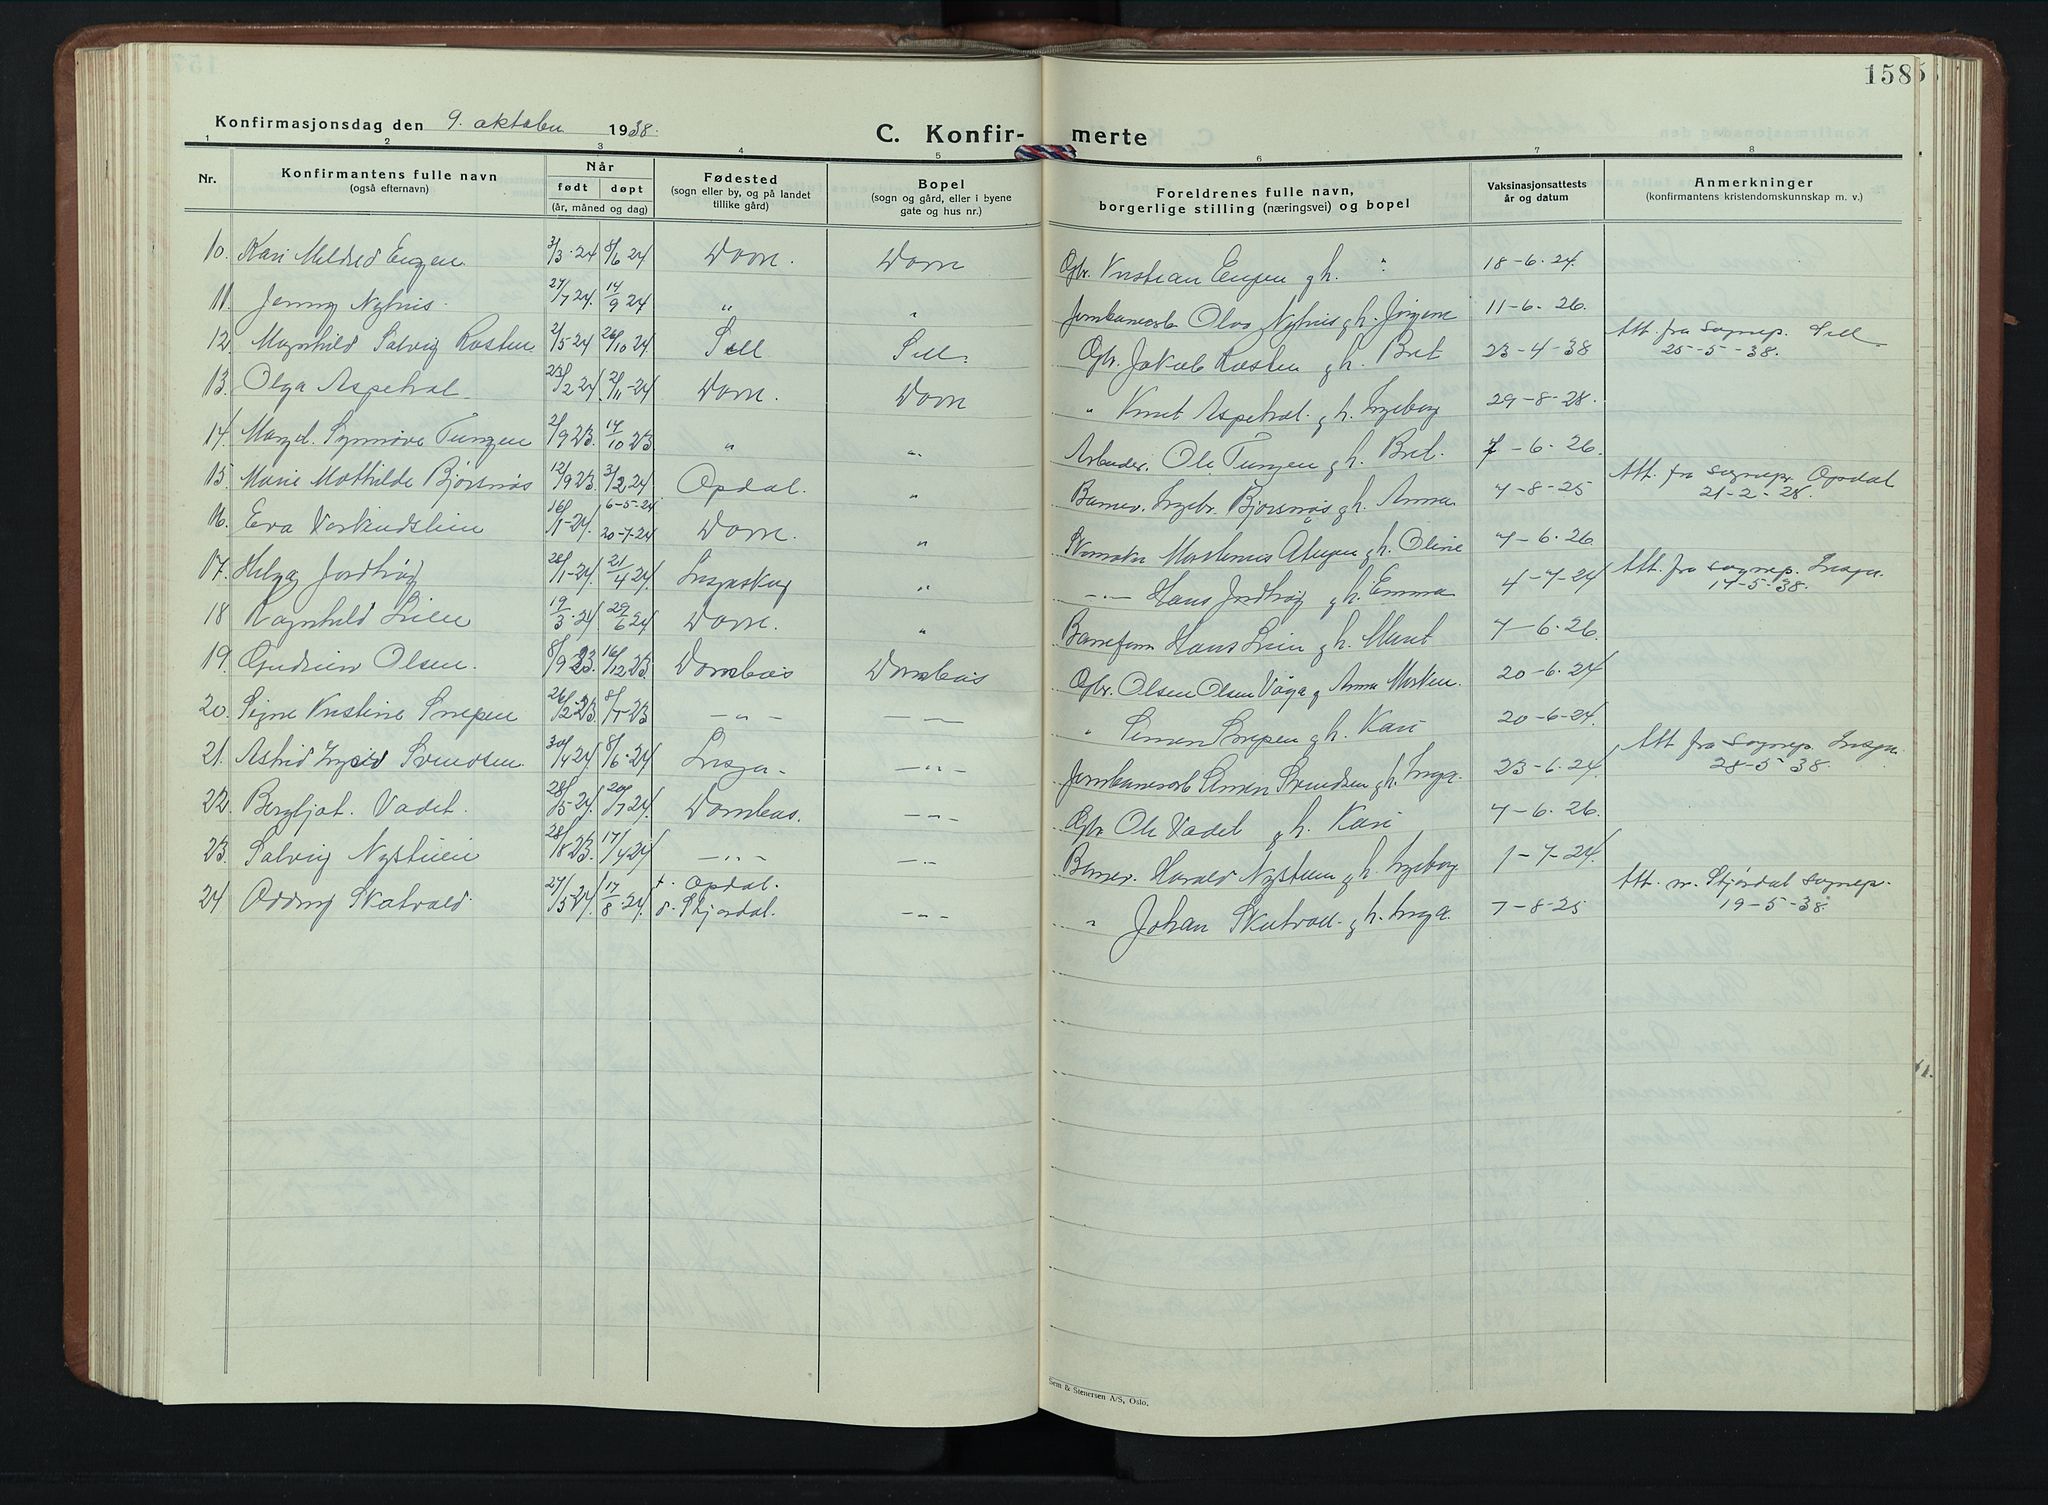 158
Konfirmasjonsdag den 9. oktober 1938.
C. Konfir- merte
1 2 3 4 5 6 7 8
Nr.
Konfirmantens fulle navn
(også efternavn)
Når
født døpt
(år, måned og dag)
Fødested
(sogn eller by, og på landet
tillike gård)
Bopel
(sogn og gård, eller i byene
gate og hus nr.)
Foreldrenes fulle navn,
borgerlige stilling (næringsvei) og bopel
Vaksinasjonsattests
år og datum
Anmerkninger
(konfirmantens kristendomskunnskap m. v.)
10. Kari Mildred Engen 3/3-24 8/6 24 Dovre. Dovre Gbr. Kristian Engen gh. " 18-6-24.
11. Jenny Nyhus. 27/7 24. 14/9 24 " " Jernbanearb Olav Nyhus gh. Jørgine 11-6-26.
12. Magnhild Solvig Rosten 2/5 24 26/10 24 Sell Sell. Gbr. Jakob Rosten gh. Brit 23-4-38 Att. fra sognep. Sell
25-5-38.
13. Olga Aspehol 23/2 24 2/11-24 Dovre. Dovre " Knut Aspehol gh. Ingeborg 29-8-28.
14. Margel. Synnøve Tungen 2/9 23. 14/10 23 " " Arbeider. Ole Tungen gh. Brit. 7-6-26.
15. Marie Mathilde Bjørsnøs 12/9 23 3/2 24 Opdal. " Banev. Ingebr. Bjørsnøs gh. Anna 7-8-25 Att. fra sognep. Opdal
21-2-28.
16. Eva Vorkindslien 16/1-24. 6-5-24
20-7-24 Dovre. " Skomaker gh. Oline 7-6-26
17. Helga Jordhøy 28/1-24. 21/4 24. " -"- Hans Jordhøy gh. Emma 4-7-24 Att. fra sognep.
14-5-38.
18 Ragnhild Lien 19/3-24 29/6 24 Dovre. " Baneform Hans Lien gh. Marit 7-6-26.
19. Gudrun Olsen. 8/9 23. 16/12 23. Dombås Dombås Gbr. Olsen Olsen Våga g Anna 20-6-24
20. Signe Kristine 26/2-23. 8/7-23 -"- -"- " Simen gh. Kari 20-6-24.
21. Astrid Ingrid Svendsen. 30/4 24 8/6-24 -"- Jernbanearb Simen Svendsen gh. Inga. 23-6-24 Att fra sognep.
28-5-38.
22. Bergljot. Vadet. 28/5-24. 20/7 24. Dombås. -"- Gbr Ole Vadet gh. Kari 7-6-26.
23. Solvig Nystuen 28/8 23. 17/4 24 -"- -"- Banev. Harald Nystuen gh. Ingeborg 1-7-24.
24 Oddny Skatvold 27/5-24. 17/8-24. f. Opdal.
d. Stjørdal. -"- " Johan Skatvold gh. Inga. 7-8-25 Att. m. Stjørdal sognep.
19-5-38.
Sem & Stenersen A/S, Oslo.